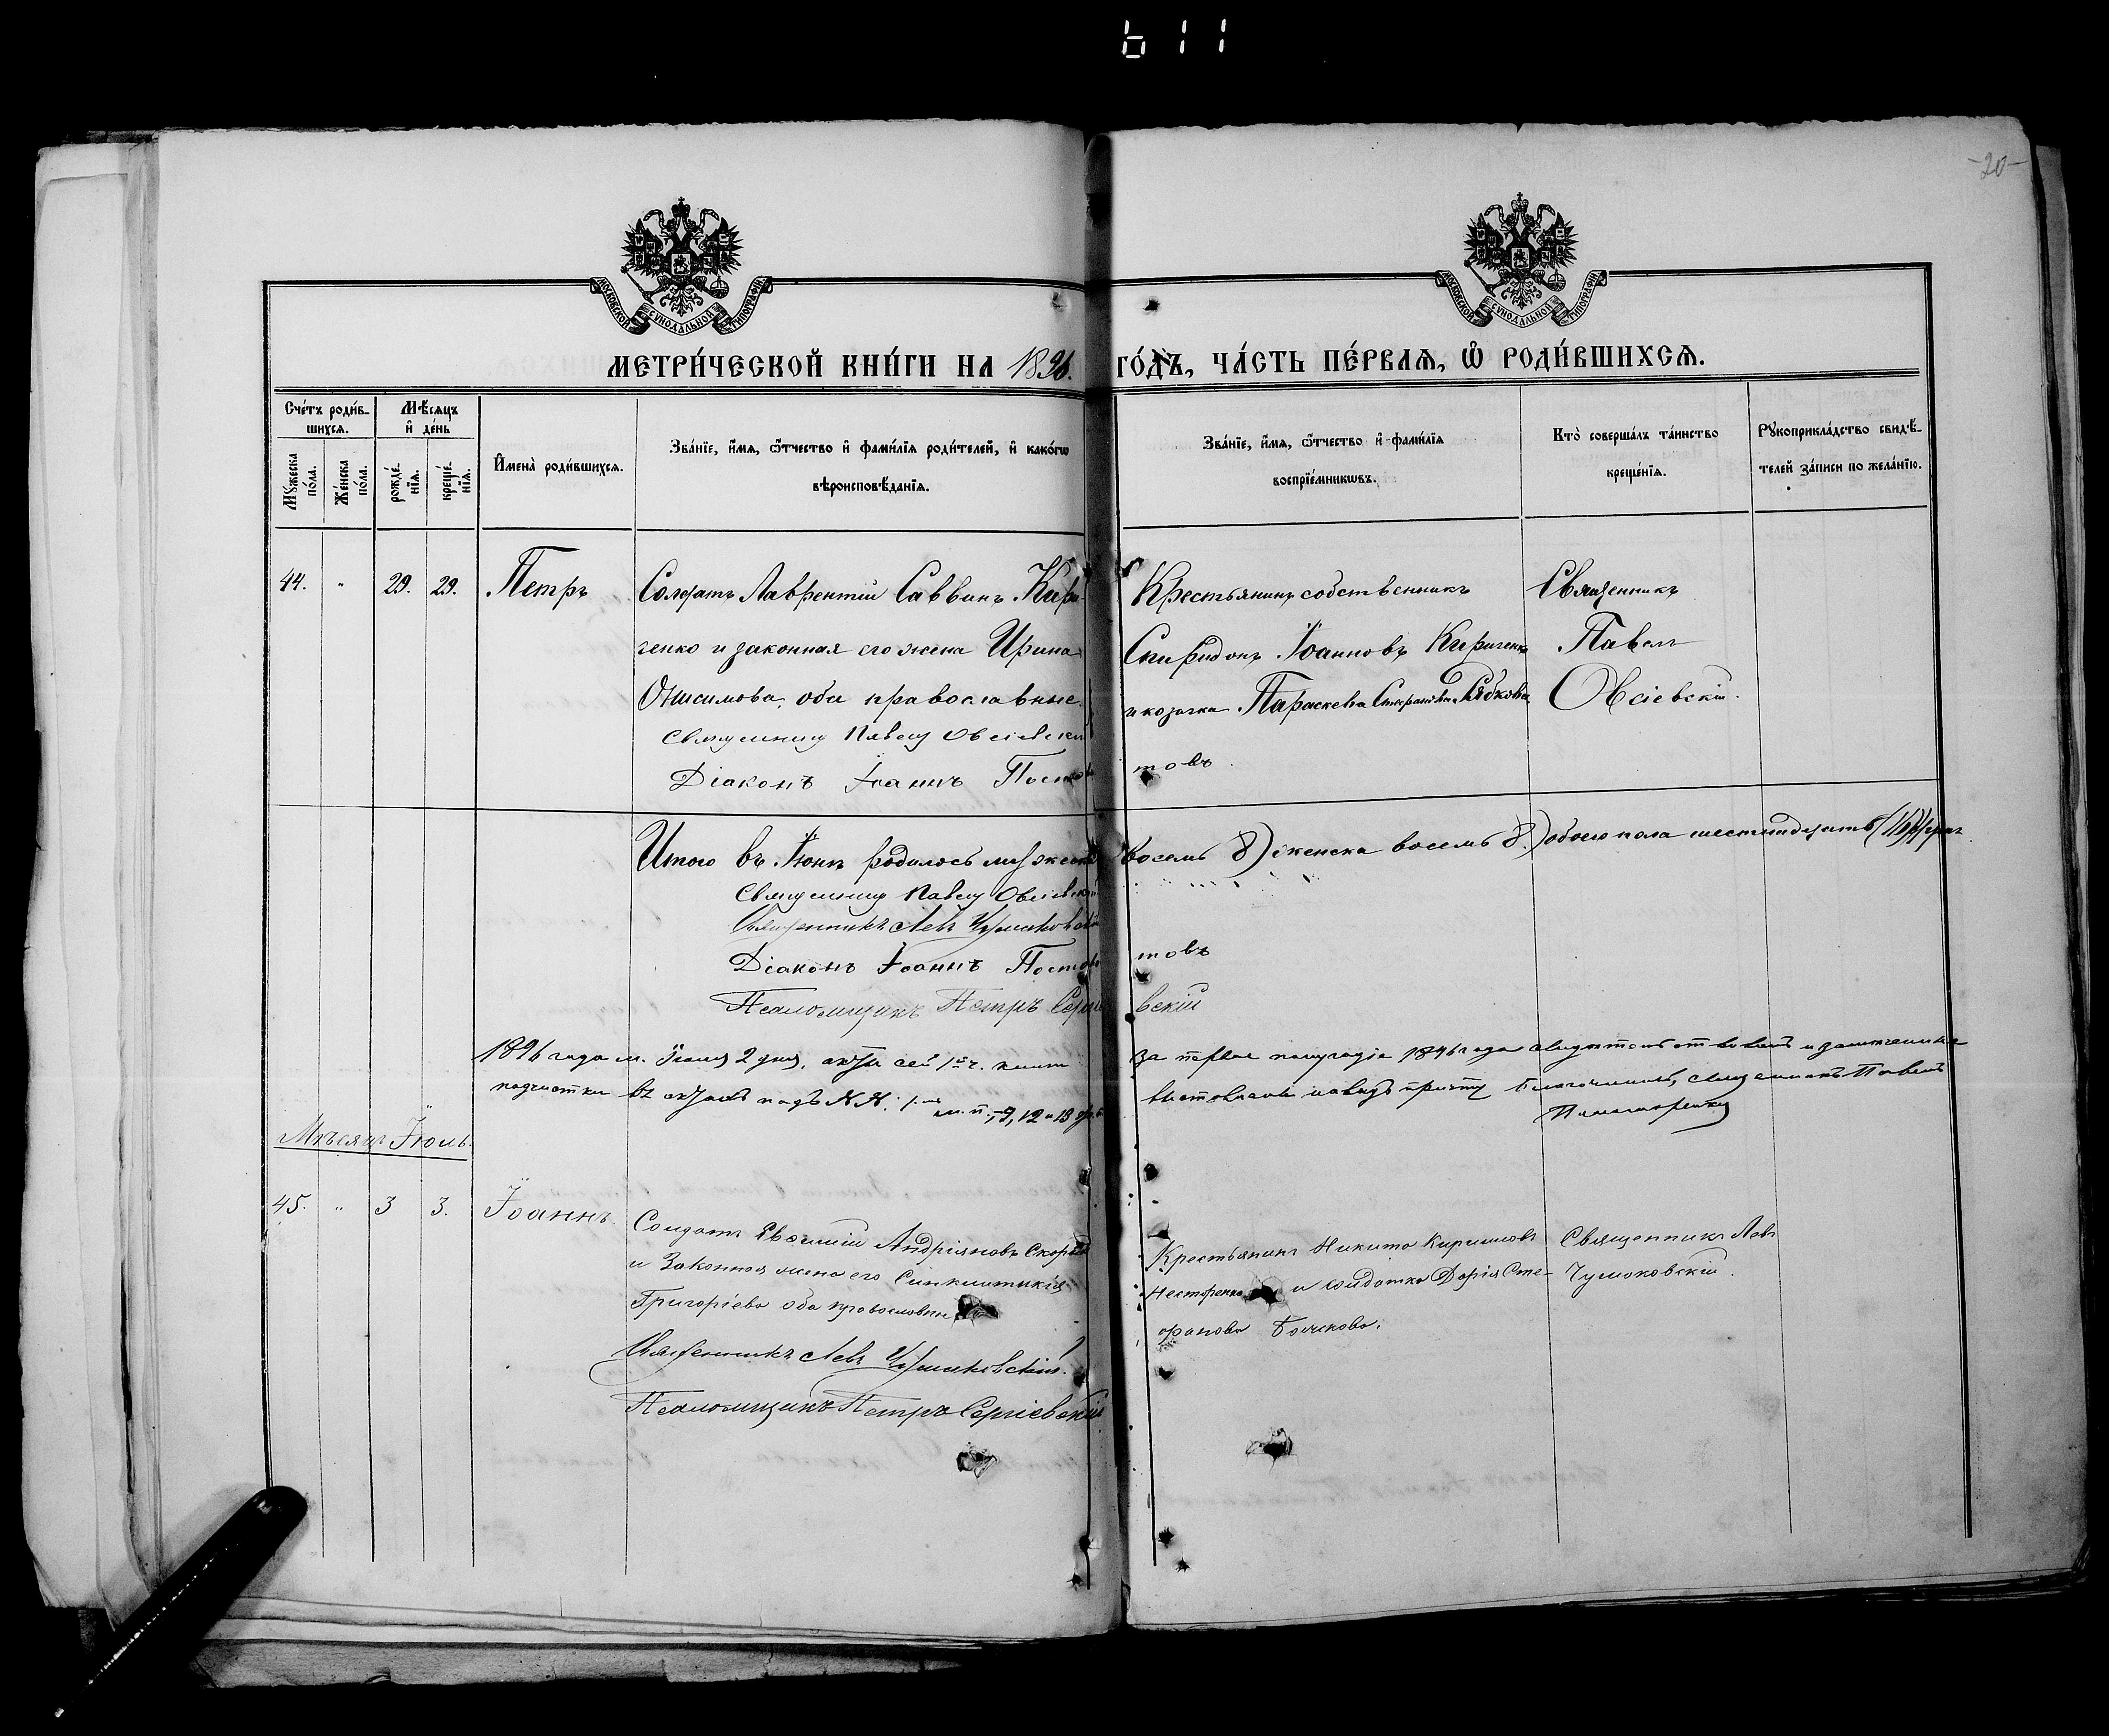 611
-20-
МОСКОВСКОЙ СѴНОДАЛЬНОЙ ТИПОГРАФІИ
МОСКОВСКОЙ СѴНОДАЛЬНОЙ ТИПОГРАФІИ
МЕТРИ́ЧЕСКОЙ КНИ́ГИ НА 1896. ГО́ДЪ, ЧА́СТЬ ПЕ́РВАЯ, Ѡ РОДИ́ВШИХСЯ.
Сче́тъ роди́в-
шихся.
Мѣ́сяцъ
и҆ де́нь
Мꙋ́жеска по́ла.
Же́нска по́ла.
рожде́нїя.
креще́нїя.
И҆мена̀ роди́вшихся.
Зва́нїе, и҆́мя, ѻ҆́тчество и҆ фами́лїя роди́телей, и҆ како́гѡ
вѣроисповѣ́данїя.
Зва́нїе, и҆́мя, ѻ҆́тчество и҆ фами́лїя
воспрїе́мникѡвъ.
Кто̀ соверша́лъ та́инство
креще́нїя.
Рꙋкоприкла́дство свидѣ́-
телей за́писи по жела́нїю.
44. " 29. 29. Петръ
Солдатъ Лаврентій Саввинъ Кири-
ченко и законная его жена Ирина
Онисимова, оба православные.
Священникъ Павелъ Овсіевскій
Діаконъ Іоаннъ Постовтовъ
Крестьянинъ собственникъ
Спиридонъ Іоанновъ Кириченко
и козачка Параскева
Священникъ
Павелъ
Овсіевскій.
Итого въ Іюнѣ родилось мужеска восемь 8) женска восемь 8.) обоего пола шестнадцать (16)
Священникъ Павелъ Овсіевскій
Священникъ Левъ Чулжковскій
Діаконъ Іоаннъ Постовтовъ
Псаломщикъ Петръ Сергіевскій
1896 года м. Іюля 2 дня, акты сей 1й ч. книги за первое полугодіе 1896 года
подчистки въ актахъ подъ №№: 9, 12 и 13 священникъ Павелъ
Мѣсяцъ Іюль.
45. " 3 3. Іоаннъ
Солдатъ Андріяновъ
и Законная жена его Синклитикія
Григоріева оба православны
Священникъ Левъ
Псаломщикъ Петръ Сергіевскій
Крестьянинъ Никита Кирилловъ
Нестеренко и солдатка Дарія Сте-
фанова
Священникъ Левъ